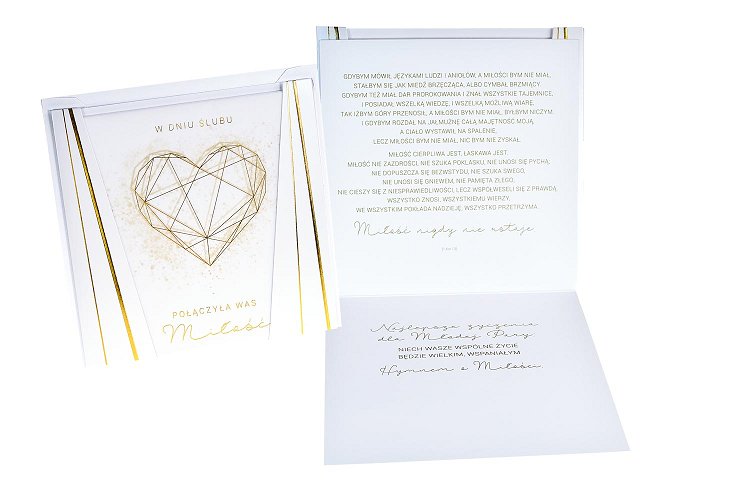 W DNIU ŚLUBU
POŁĄCZYŁA WAS
Miłość
GDYBYM MÓWIŁ JĘZYKAMI LUDZI I ANIOŁÓW, A MIŁOŚCI BYM NIE MIAŁ,
STAŁBYM SIĘ JAK MIEDŹ BRZĘCZĄCA, ALBO CYMBAŁ BRZMIĄCY.
GDYBYM TEŻ MIAŁ DAR PROROKOWANIA I ZNAŁ WSZYSTKIE TAJEMNICE,
I POSIADAŁ WSZELKĄ WIEDZĘ, I WSZELKĄ MOŻLIWĄ WIARĘ,
TAK IŻBYM GÓRY PRZENOSIŁ, A MIŁOŚCI BYM NIE MIAŁ, BYŁBYM NICZYM.
I GDYBYM ROZDAŁ NA JAŁMUŻNĘ CAŁĄ MAJĘTNOŚĆ MOJĄ,
A CIAŁO WYSTAWIŁ NA SPALENIE,
LECZ MIŁOŚCI BYM NIE MIAŁ, NIC BYM NIE ZYSKAŁ.
MIŁOŚĆ CIERPLIWA JEST, ŁASKAWA JEST.
MIŁOŚĆ NIE ZAZDROŚCI, NIE SZUKA POKLASKU, NIE UNOSI SIĘ PYCHĄ;
NIE DOPUSZCZA SIĘ BEZWSTYDU, NIE SZUKA SWEGO,
NIE UNOSI SIĘ GNIEWEM, NIE PAMIĘTA ZŁEGO;
NIE CIESZY SIĘ Z NIESPRAWIEDLIWOŚCI, LECZ WSPÓŁWESELI SIĘ Z PRAWDĄ.
WSZYSTKO ZNOSI, WSZYSTKIEMU WIERZY,
WE WSZYSTKIM POKŁADA NADZIEJĘ, WSZYSTKO PRZETRZYMA.
Miłość nigdy nie ustaje
Najlepsze życzenia
dla Młodej Pary.
NIECH WASZE WSPÓLNE ŻYCIE
BĘDZIE WIELKIM, WSPANIAŁYM
Hymnem o Miłości.